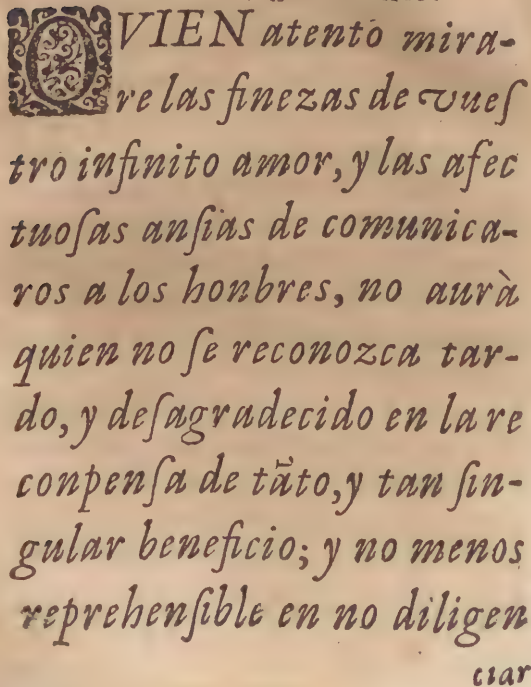 QVIEN atento mira-
re las finezas de vueſ
tro infinito amor, y las afec
tuoſas anſias de comunica-
ros a los honbres, no aurà
quien no ſe reconozca tar-
do, y deſagradecido en la re
conpenſa de tãto, y tan ſin-
gular beneficio; y no menos
reprehenſible en no diligen
ciar